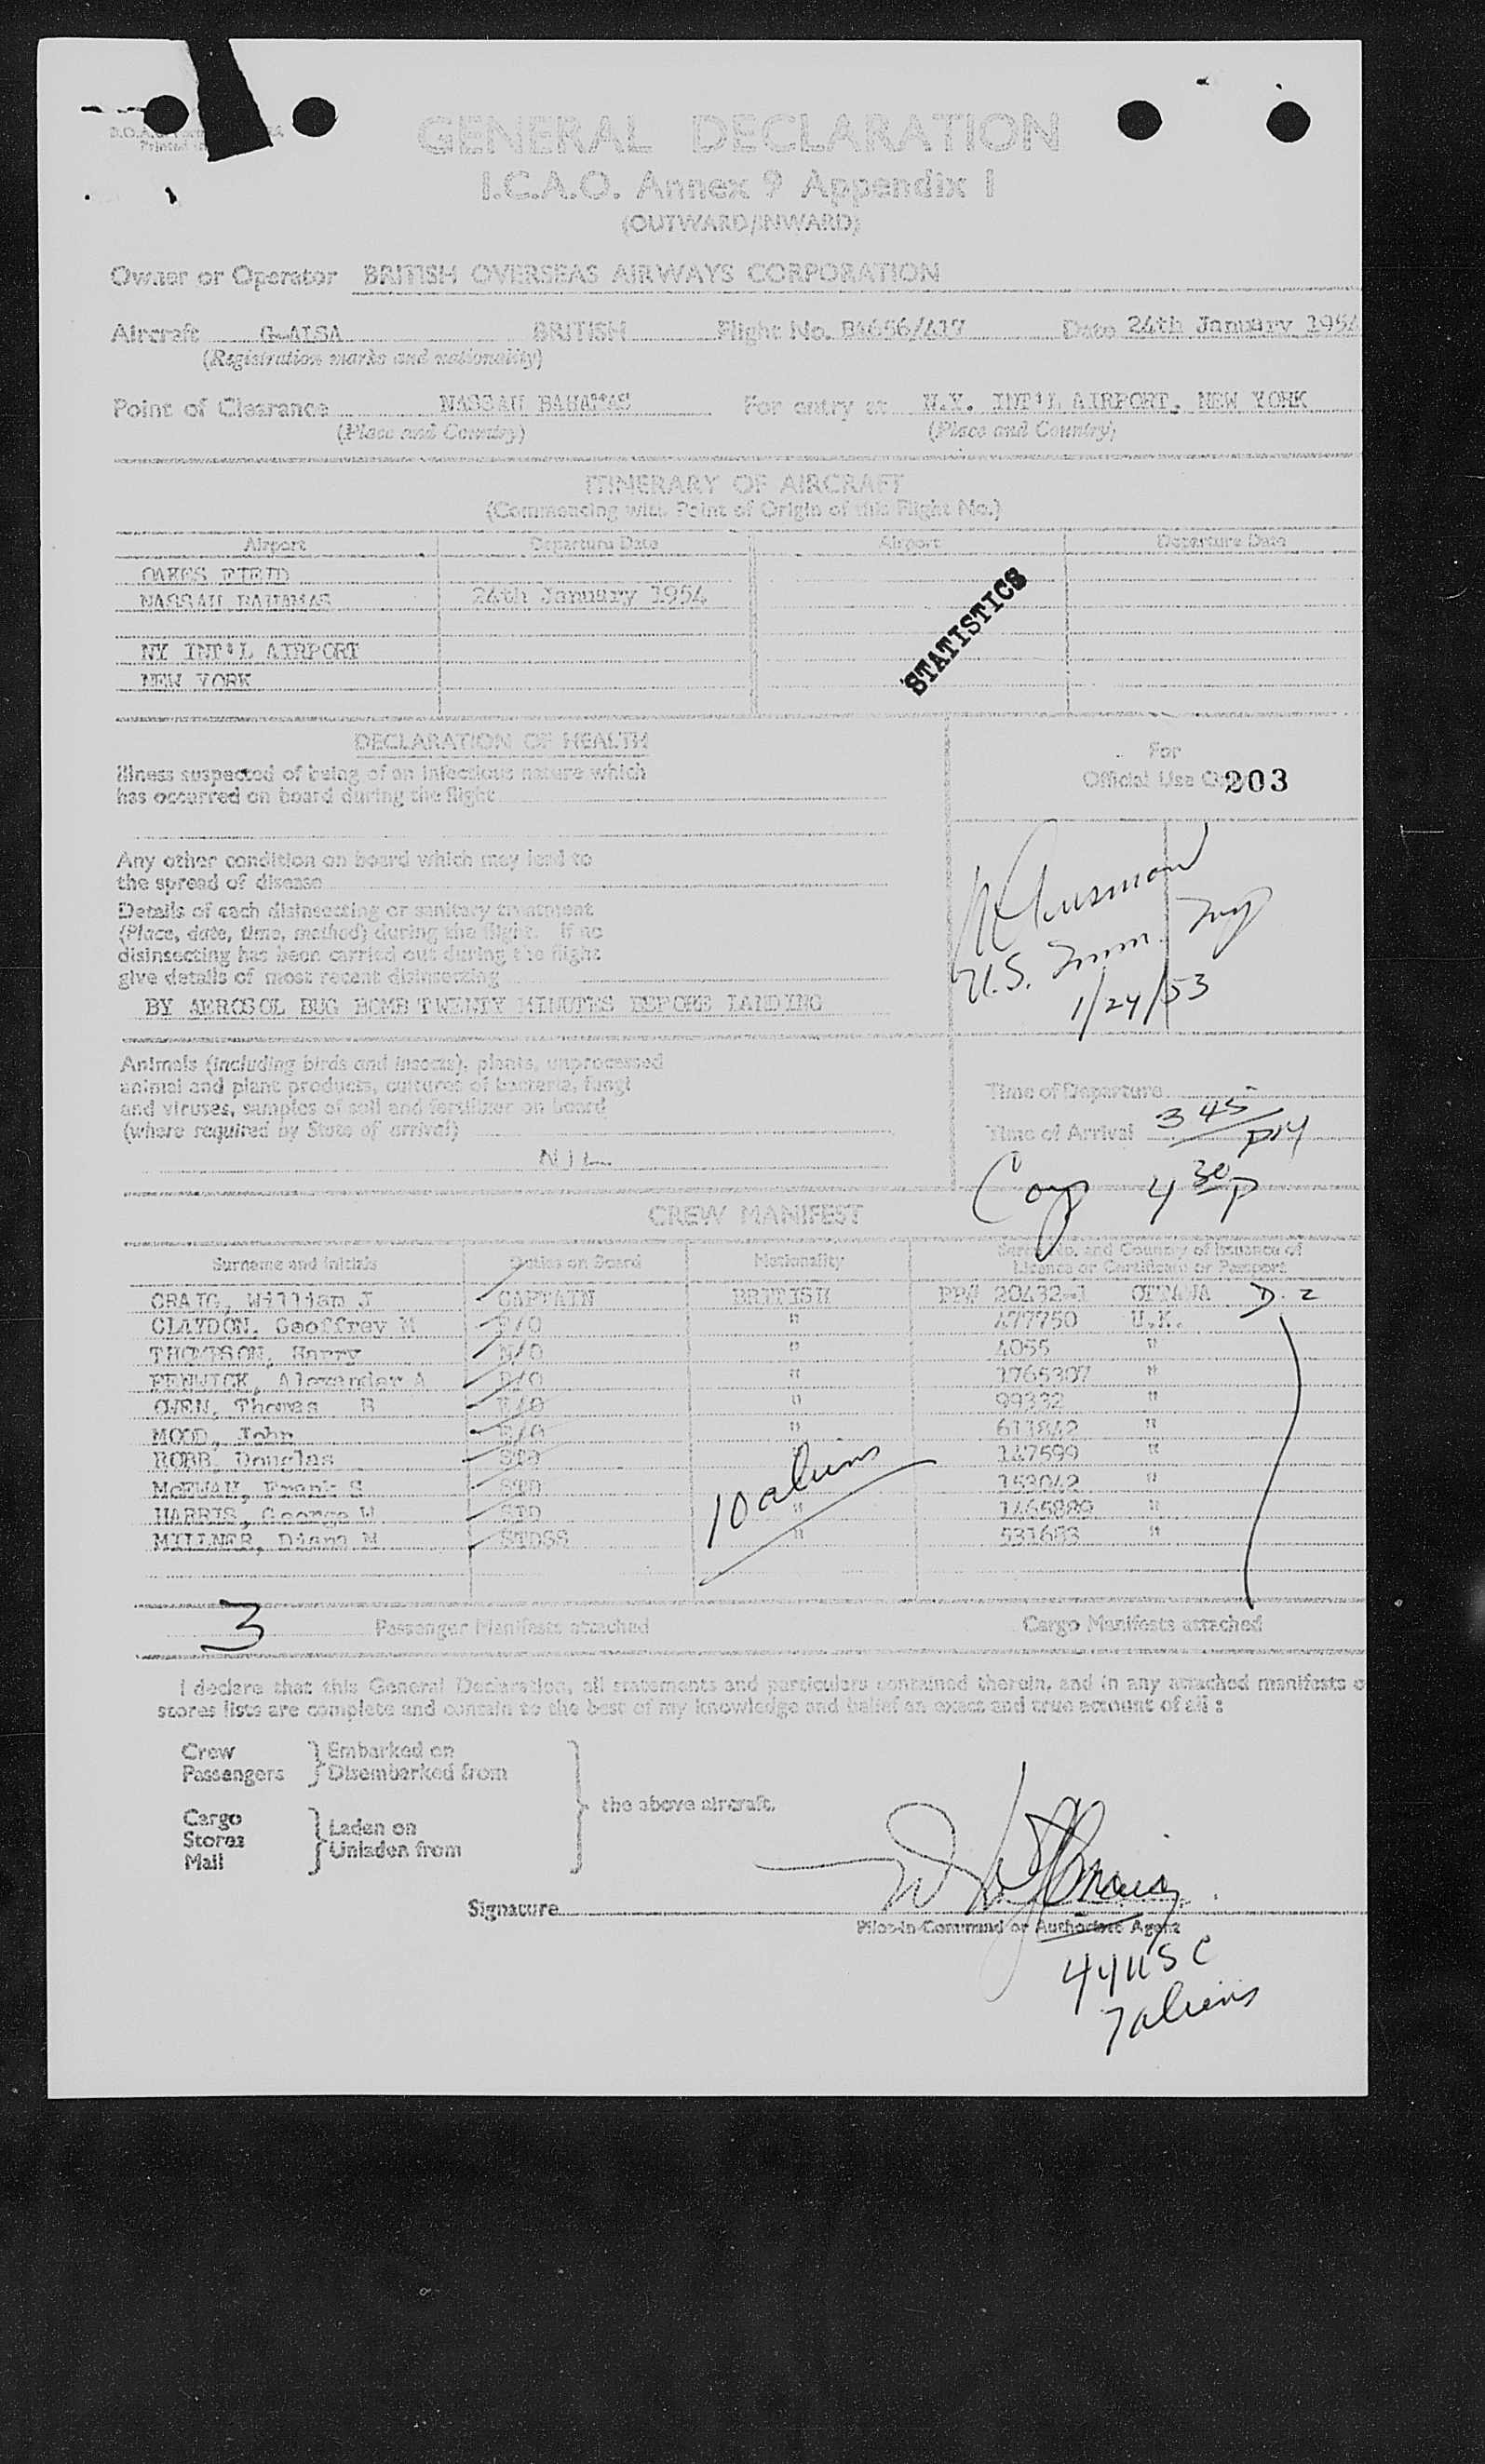 GENERAL DECLARATION
I.C.A.O. Annex 9 Appendix I
(OUTWARD/INWARD)
Owner or Operator BRITISH OVERSEAS AIRWAYS CORPORATION
Aircraft G-ALSA BRITISH Flight No. B4656/417 Date 24th January 1954
(Registration marks and nationality)
Point of Clearance NASSAU BAHAMAS For entry at N.Y. INT'L AIRPORT, NEW YORK
(Place and Country) (Place and Country)
ITINERARY OF AIRCRAFT
(Commencing with Point of Origin of this Flight No.)
Airport Departure Date Airport Departure Date
OAKES FIELD
NASSAU BAHAMAS 24th January 1954
NY INT'L AIRPORT
NEW YORK
STATISTICS
DECLARATION OF HEALTH
Illness suspected of being of an infectious nature which
has occurred on board during the flight
Any other condition on board which may lead to
the spread of disease
Details of each disinsecting or sanitary treatment
(Place, date, time, method) during the flight. If no
disinsecting has been carried out during the flight
give details of most recent disinsecting
BY AEROSOL BUG BOMB TWENTY MINUTES BEFORE LANDING
For
Official Use 203
U.S. Imm. Insp
1/24/53
Animals (including birds and insects), plants, unprocessed
animal and plant products, cultures of bacteria, fungi
and viruses, samples of soil and fertilizer on board
(where required by State of arrival)
NIL
Time of Departure
Time of Arrival 3 45 PM
4 30 P
CREW MANIFEST
Surname and Initials Duties on Board Nationality Serial No. and Country of Issuance of
Licence or Certificate or Passport
CRAIG, William J CAPTAIN BRITISH PP# 20432-1 OTTAWA D.2
CLAYDON, Geoffrey M F/O " 477750 U.K.
THOMPSON, Harry N/O " 4055 "
FENWICK, Alexander A R/O " 1765307 "
OWEN, Thomas B E/O " 99332 "
MOOD, John E/O " 611842 "
ROBB, Douglas STD " 147599 "
McEWAN, Frank S STD 153042 "
HARRIS, George W STD " 1465889 "
MILLNER, Diana M STDSS " 531683 "
10 aliens
3 Passenger Manifests attached Cargo Manifests attached
I declare that this General Declaration, all statements and particulars contained therein, and in any attached manifests o
stores lists are complete and contain to the best of my knowledge and belief an exact and true account of all :
Crew Embarked on
Passengers Disembarked from
the above aircraft.
Cargo Laden on
Stores Unladen from
Mail
Signature
Pilot-in-Command or Authorised Agent
44 USC
7 aliens